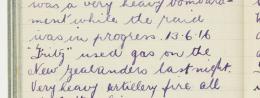 was a very heavy bombard-
ment while the raid
was in progress. 13.6.16
"Fritz" used gas on the
New Zealanders last night.
Very heavy artillery fire all